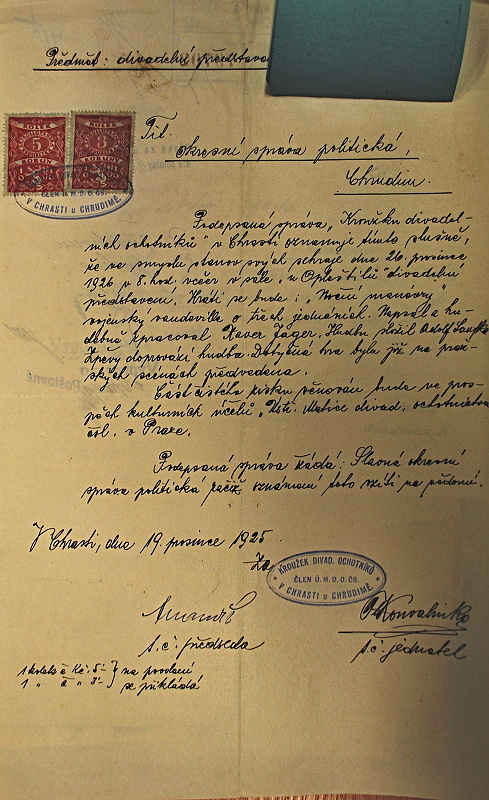 Předmět: divadelní představe
KOLEK
5
KORUN
KOLEK
3
KORUNY
ČLEN Ú. M. D. O. ČS.
V CHRASTI u CHRUDIMĚ
Tit.
okresní správa politická,
Chrudim.
Podepsaná správa „Kroužku divadel-
ních ochotníků" v Chrasti oznamuje tímto slušně,
že ve smyslu stanov svých sehraje dne 26. prosince
1926 v 8. hod. večer v sále „u Opletilů" divadelní
představení. Hráti se bude: „Noční manévry"
vojenský vaudeville o třech jednáních. Napsal a hu-
debně zpracoval Xaver Jäger. Hudbu složil Adolf
Zpěvy doprovází hudba. Dotyčná hra byla již na praž-
ských scénách předvedena.
Část čistého zisku věnován bude ve pros-
pěch kulturních účelů „Ústř. Matice divad. ochotnictva
čsl. v Praze.
Podepsaná správa žádá: Slavná okresní
správa politická račiž oznámení toto vzíti na vědomí.
V Chrasti, dne 19. prosince 1925.
Za
KROUŽEK DIVAD. OCHOTNÍKŮ
ČLEN Ú. M. D. O. ČS.
V CHRASTI u CHRUDIMĚ
P. Konvalinka
t. č. předseda
t. č. jednatel
1 kolek à Kč 5·- } na povolení
1 „ à „ 3·- } se přikládá